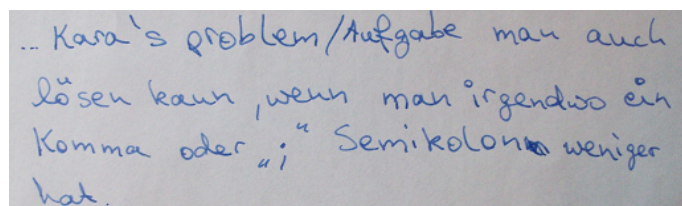 ... Kara's problem/Aufgabe man auch
lösen kann, wenn man irgendwo ein
Komma oder „;“ Semikolon weniger
hat.